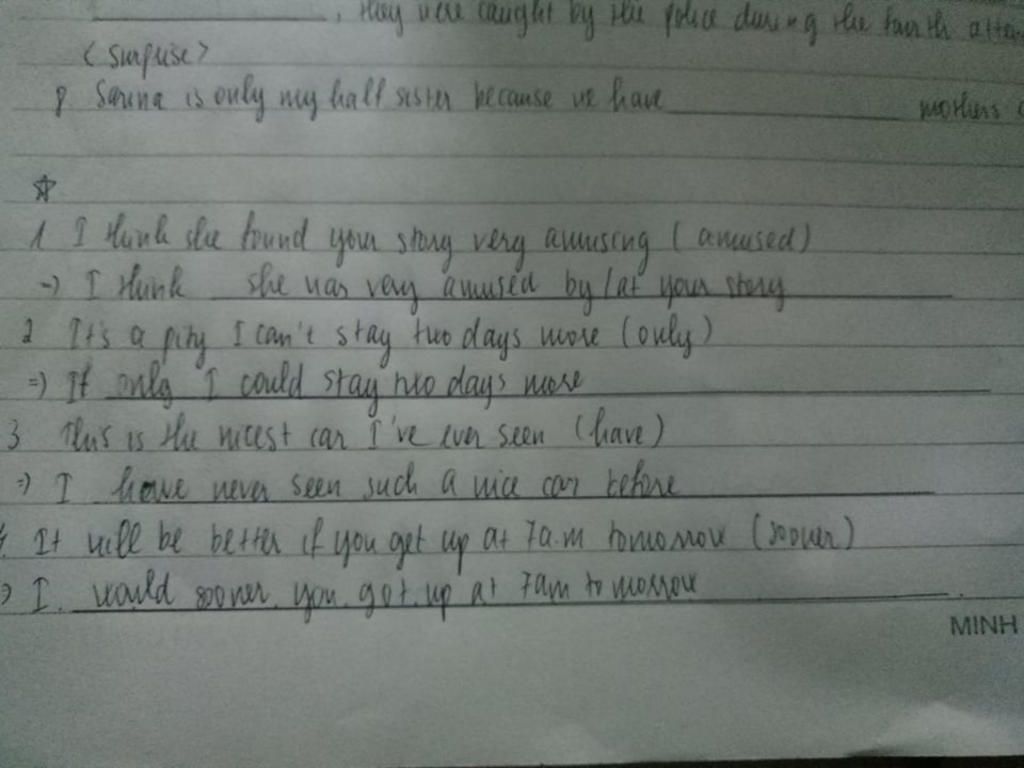 , they were caught by the police during the fourth atte
<surprise>
8 Sarina is only my half sister because we have ____ mothers
☆
1 I think she found your story very amusing (amused)
=) I think she was very amused by/at your story
2 It's a pity I can't stay two days more (only)
=) If only I could stay two days more
3 This is the nicest car I've ever seen (have)
=) I have never seen such a nice car before
4 It will be better if you get up at 7a.m tomorrow (sooner)
=) I would sooner you got up at 7am tomorrow
MINH